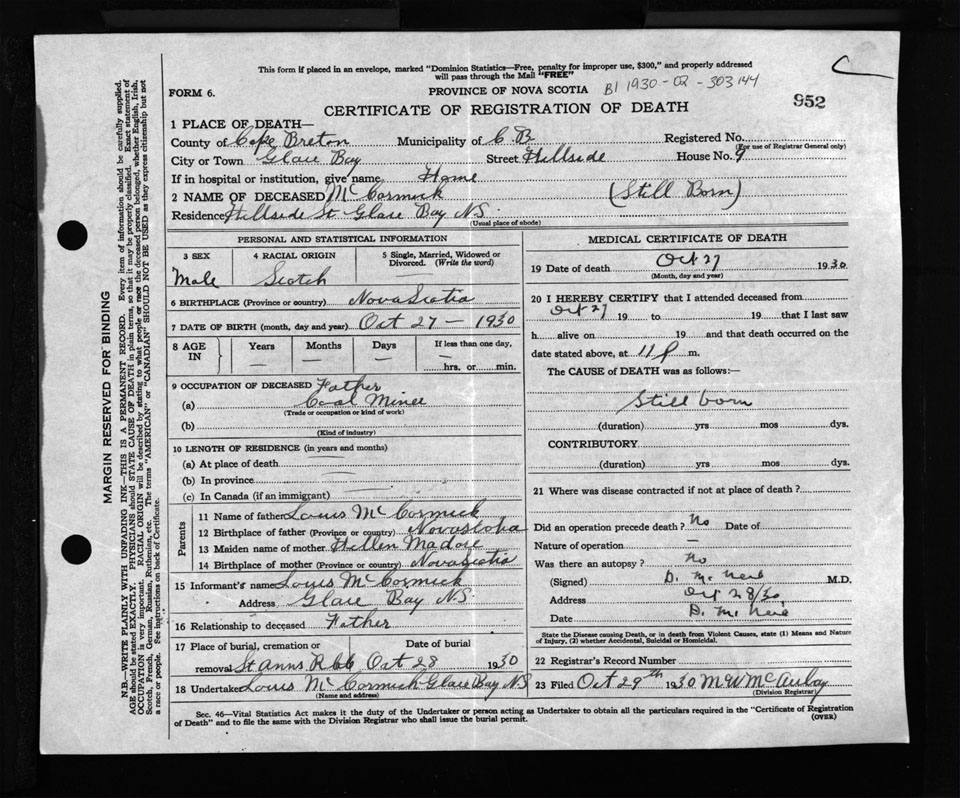 This form if placed in an envelope, marked "Dominion Statistics—Free, penalty for improper use, $300," and properly addressed
will pass through the Mail "FREE"
FORM 6.
PROVINCE OF NOVA SCOTIA
B1 1930-02-303144
952
CERTIFICATE OF REGISTRATION OF DEATH
1 PLACE OF DEATH—
County of Cape Breton Municipality of C B Registered No.
(For use of Registrar General only)
City or Town Glace Bay Street Hillside House No. 9
If in hospital or institution, give name Home
2 NAME OF DECEASED McCormick (Still Born)
Residence Hillside St Glace Bay N.S.
(Usual place of abode)
PERSONAL AND STATISTICAL INFORMATION
3 SEX 4 RACIAL ORIGIN 5 Single, Married, Widowed or Divorced. (Write the word)
Male Scotch
6 BIRTHPLACE (Province or country) Nova Scotia
7 DATE OF BIRTH (month, day and year) Oct 27 — 1930
8 AGE IN Years Months Days If less than one day,
— — — —
hrs. or min.
9 OCCUPATION OF DECEASED Father
(a) Coal Miner
(Trade or occupation or kind of work)
(b)
(Kind of industry)
10 LENGTH OF RESIDENCE (in years and months)
(a) At place of death
(b) In province
(c) In Canada (if an immigrant)
Parents
11 Name of father Louis McCormick
12 Birthplace of father (Province or country) Nova Scotia
13 Maiden name of mother Hellen Madore
14 Birthplace of mother (Province or country) Nova Scotia
15 Informant's name Louis McCormick
Address Glace Bay N.S.
16 Relationship to deceased Father
17 Place of burial, cremation or Date of burial
removal St Anns Oct 28 1930
18 Undertaker Louis McCormick Glace Bay N.S
(Name and address)
MEDICAL CERTIFICATE OF DEATH
19 Date of death Oct 27 1930
(Month, day and year)
20 I HEREBY CERTIFY that I attended deceased from
Oct 27 19 to 19 that I last saw
h alive on 19 and that death occurred on the
date stated above, at 11 p m.
The CAUSE of DEATH was as follows:—
Still born
(duration) yrs mos dys.
CONTRIBUTORY
(duration) yrs mos dys.
21 Where was disease contracted if not at place of death?
Did an operation precede death? No Date of
Nature of operation —
Was there an autopsy? No
(Signed) D. McNeil M.D.
Address Oct 28/30
Date D. McNeil
State the Disease causing Death, or in death from Violent Causes, state (1) Means and Nature
of Injury, (2) whether Accidental, Suicidal or Homicidal.
22 Registrar's Record Number
23 Filed Oct 29th 1930 M W McAulay
(Division Registrar)
Sec. 46—Vital Statistics Act makes it the duty of the Undertaker or person acting as Undertaker to obtain all the particulars required in the "Certificate of Registration
of Death" and to file the same with the Division Registrar who shall issue the burial permit.
(OVER)
MARGIN RESERVED FOR BINDING
N.B.—WRITE PLAINLY WITH UNFADING INK—THIS IS A PERMANENT RECORD. Every item of information should be carefully supplied.
AGE should be stated EXACTLY. PHYSICIANS should STATE CAUSE OF DEATH in plain terms, so that it may be properly classified. Exact statement of
OCCUPATION is very important. RACIAL ORIGIN will be described by stating to what people or race the deceased person belonged, whether English, Irish,
Scotch, French, German, Russian, Ruthenian, etc. The terms "AMERICAN" or "CANADIAN" SHOULD NOT BE USED as they express citizenship but not
a race or people. See instructions on back of Certificate.